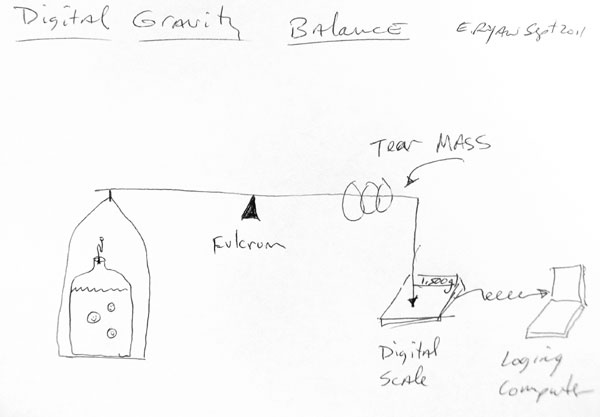 Digital Gravity Balance
E. Ryan Sept 2011
Tear MASS
Fulcrum
1,500g
Digital
Scale
Loging
Computer